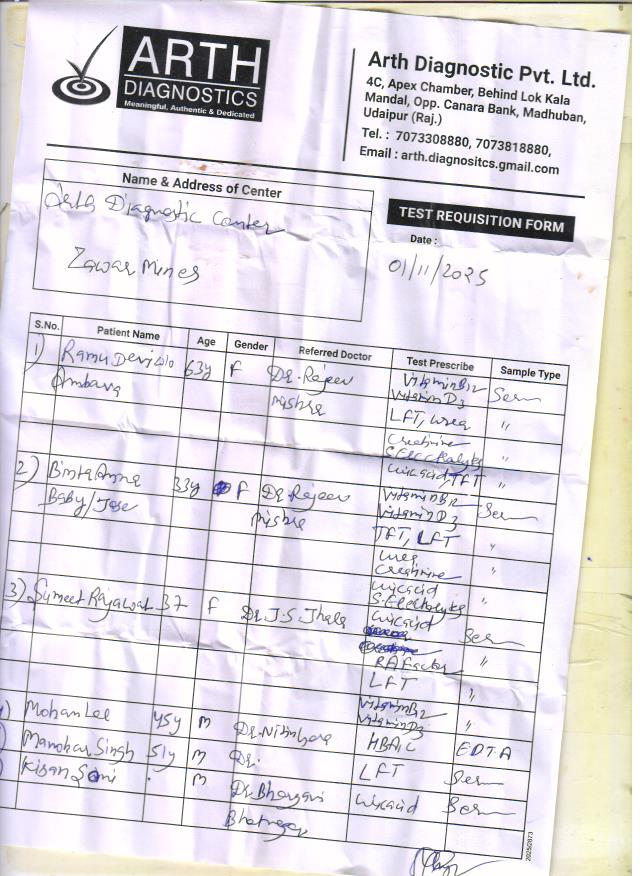 ARTH
DIAGNOSTICS
Meaningful, Authentic & Dedicated
Arth Diagnostic Pvt. Ltd.
4C, Apex Chamber, Behind Lok Kala
Mandal, Opp. Canara Bank, Madhuban,
Udaipur (Raj.)
Tel. : 7073308880, 7073818880,
Email : arth.diagnositcs.gmail.com
Name & Address of Center
Arth Diagnostic Center
Zawar Mines
TEST REQUISITION FORM
Date :
01/11/2025
S.No. Patient Name Age Gender Referred Doctor Test Prescribe Sample Type
1) Ramu Devi 63y F Dr. Rajeev Vitamin B12 Serum
Ambava Mishra Vitamin D3
LFT, urea "
Creatinine
S. Electrolytes "
uricacid, TFT "
2) Binta Anna 33y F Dr. Rajeev Vitamin B12 Serum
Baby/Jose Mishra Vitamin D3
TFT, LFT "
urea
Creatinine
uricacid
S. Electrolytes "
3) Sumeet Rajawat 37 F Dr. J.S. Jhala uricacid Serum
RA Factor "
LFT "
Vitamin B12
Vitamin D3 "
Mohan Lal 45y M HBA1C EDTA
Manohar Singh 51y M Dr. LFT Serum
Kisan Soni M Dr. Bhargavi uricacid Serum
Bhatnagar
2025/2873